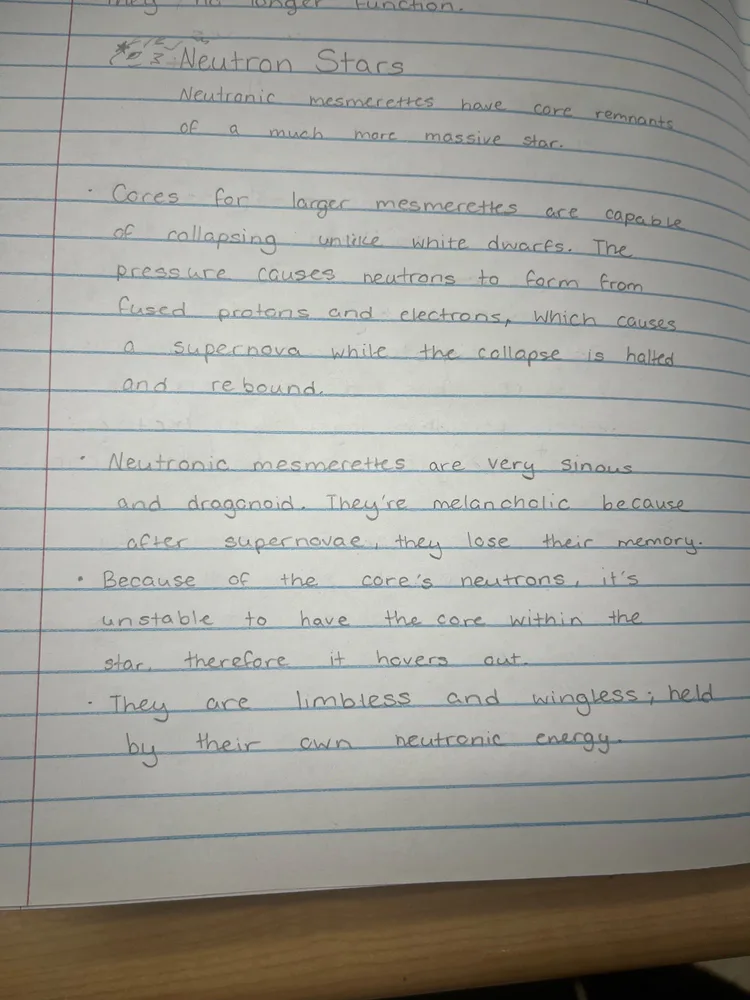 they no longer function.
Neutron Stars
Neutronic mesmerettes have core remnants
of a much more massive star.
· Cores for larger mesmerettes are capable
of collapsing unlike white dwarfs. The
pressure causes neutrons to form from
fused protons and electrons, which causes
a supernova while the collapse is halted
and rebound.
· Neutronic mesmerettes are very sinous
and draganoid. They're melancholic because
after supernovae, they lose their memory.
· Because of the core's neutrons, it's
unstable to have the core within the
star, therefore it hovers out.
· They are limbless and wingless; held
by their own neutronic energy.